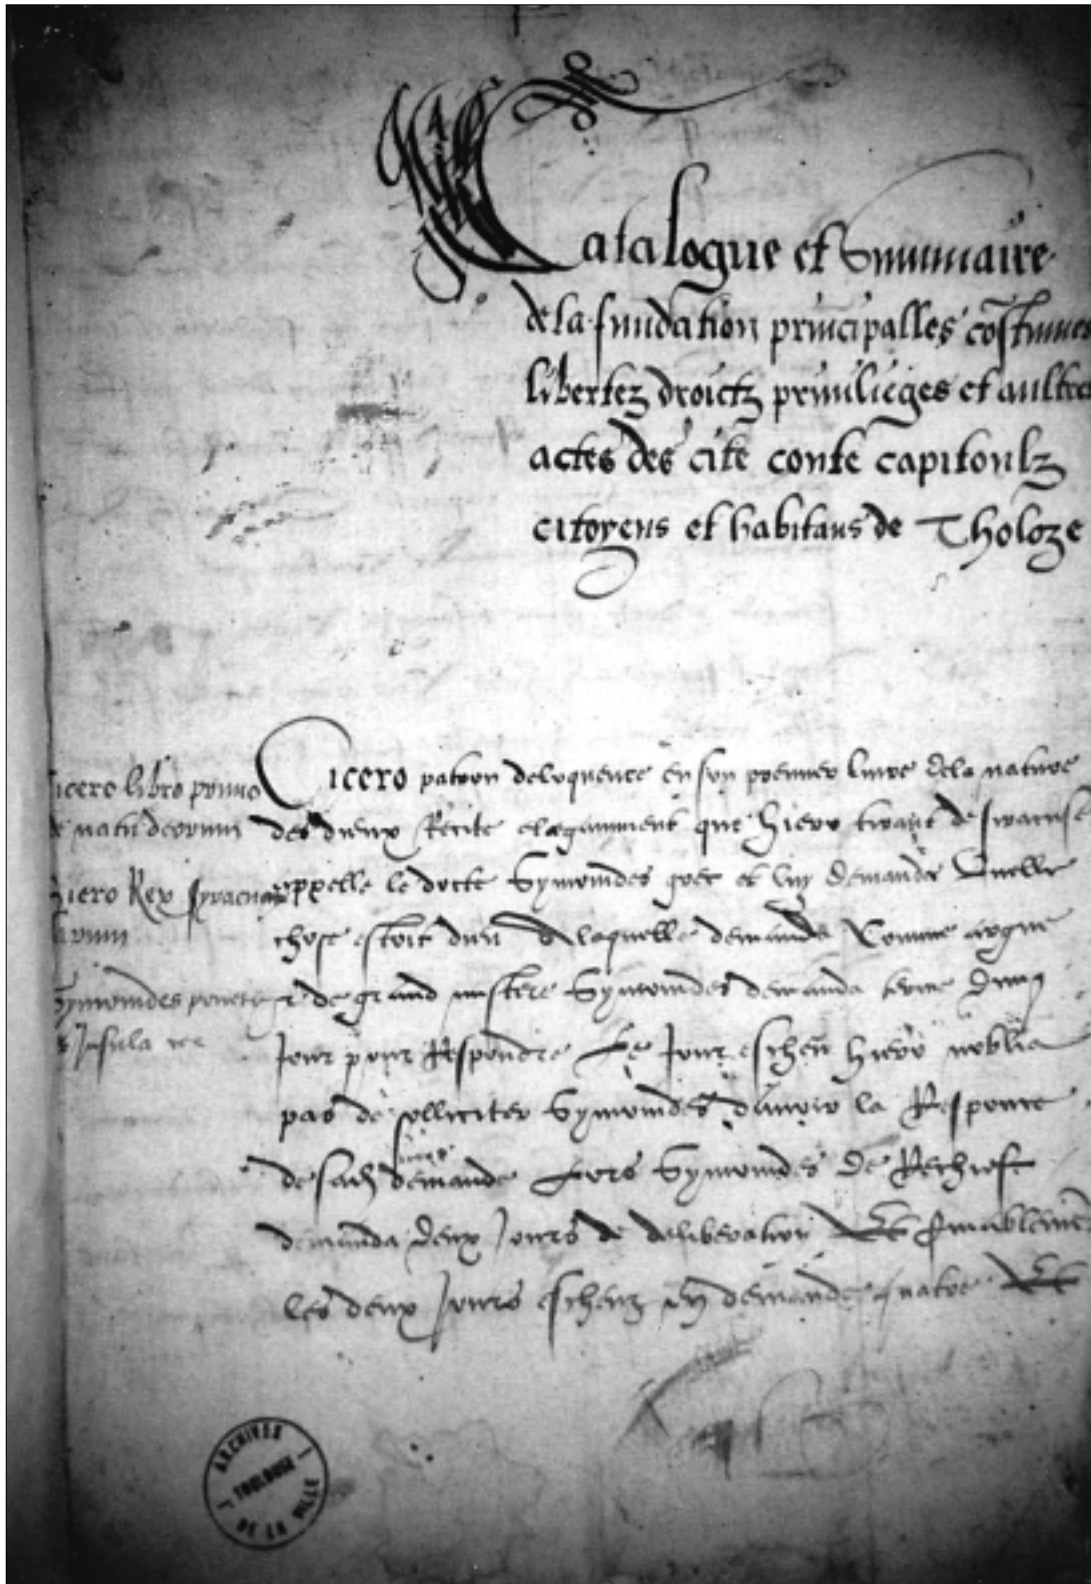 Catalogue et Summaire
de la fundation principalles costumes
libertez droictz priuilieges et aultres
actes des cite conte capitoulz
citoyens et habitans de Tholoze
Cicero libro primo
de natu deorum
Hiero Rex syracusa
rum
Symonides poneta
Insula
Cicero patron deloquence en son premier liure dela nature
des dieux Recite elegamment que hiero tirant de siracuse
appelle le docte Symonides poet et luy demande Quelle
chose estoit dieu laquelle demanda Comme
de grand mistere Symonides demanda terme dung
Jour pour Respondre Le Jour escheu hiero noblia
pas de solliciter Symonides dauoir la Responce
de sad demande Lors Symonides de Rechief
demanda deux Jours de deliberation Et semblement
les deux Jours escheuz en demande quatre Et
ARCHIVES
TOULOUSE
DE LA VILLE